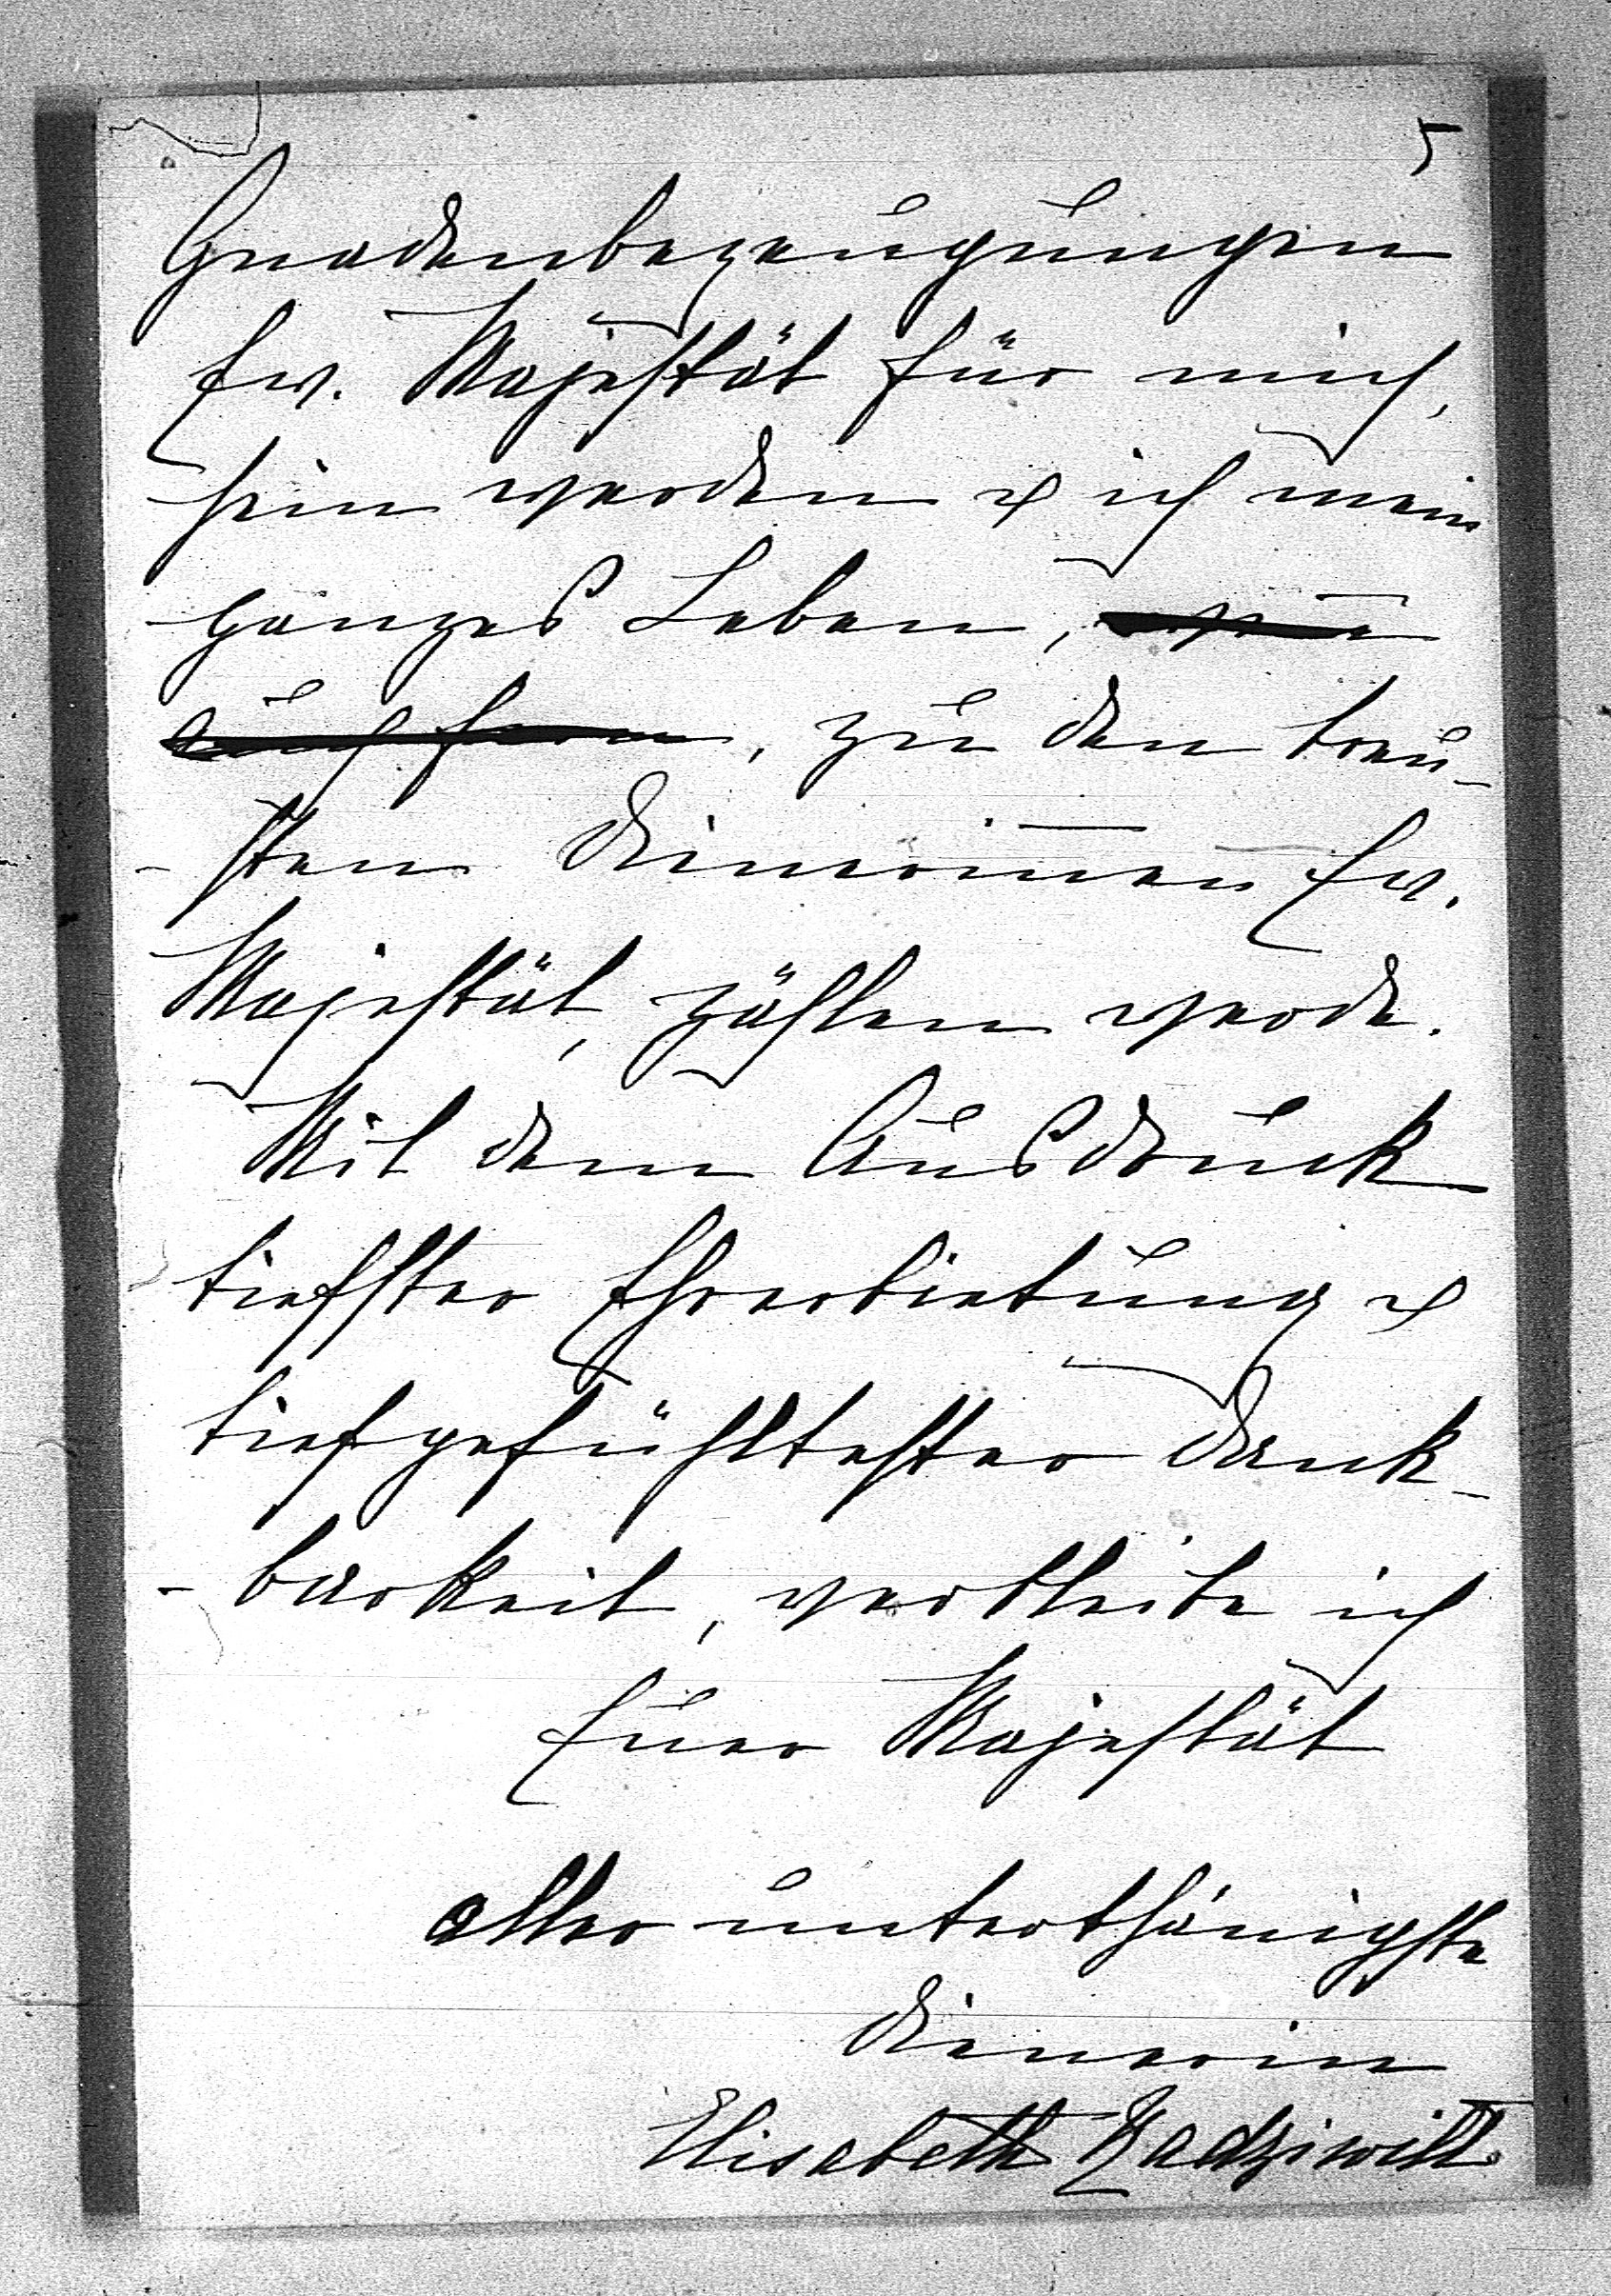 5
Gnadenbezeugungen
Ew. Majestät für mich,
sein werden & ich mein
ganzes Leben,
, zu den treu-
- sten Dienerinnen Ew.
Majestät, zählen werde.
Mit dem Ausdruck
tiefster Ehrerbietung &
tiefgefühltester Dank-
- barkeit, verbleibe ich
Euer Majestät
aller unterthänigste
Dienerin
Elisabeth Radziwill.